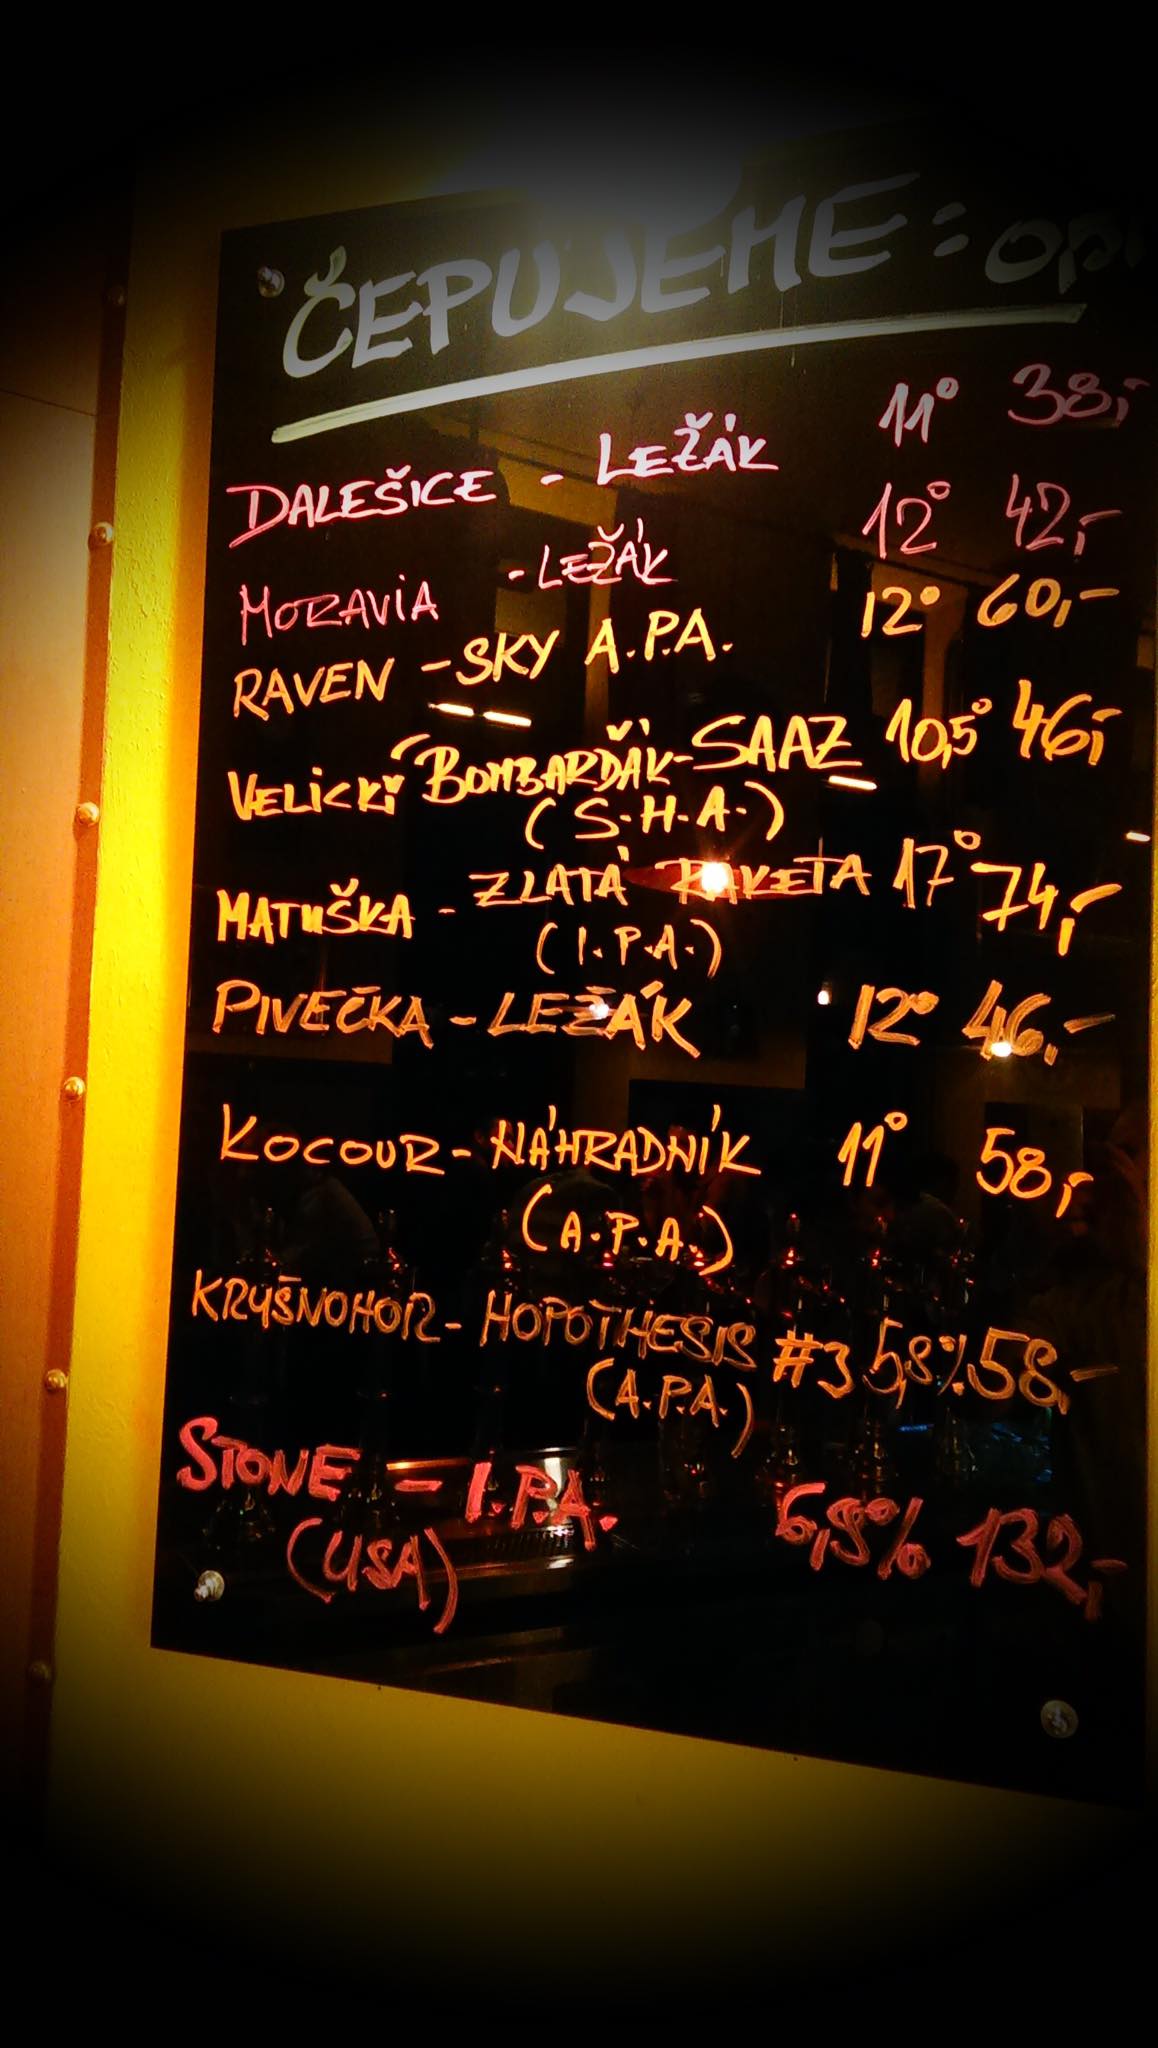 ČEPUJEME:
DALEŠICE - LEŽÁK 11° 38,-
MORAVIA - LEŽÁK 12° 42,-
RAVEN - SKY A.P.A. 12° 60,-
VELICKÝ BOMBARĎÁK-SAAZ 10,5° 46,-
(S.H.A.)
MATUŠKA - ZLATÁ RAKETA 17° 74,-
(I.P.A.)
PIVEČKA - LEŽÁK 12° 46,-
KOCOUR - NÁHRADNÍK 11° 58,-
(A.P.A.)
KRUŠNOHOR - HOPOTHESIS #3 5,8% 58,-
(A.P.A.)
STONE - I.P.A. 6,9% 132,-
(USA)